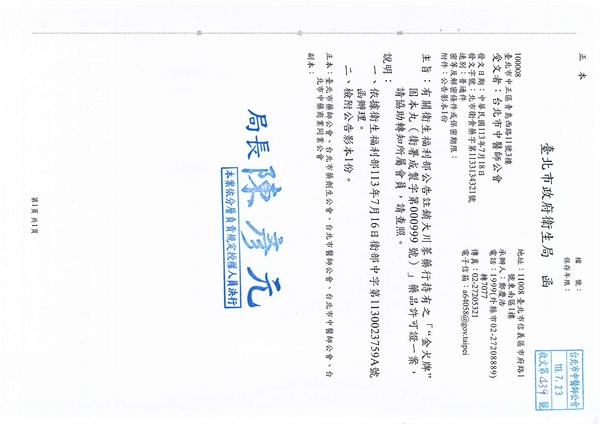 正本
檔　號：
保存年限：
臺北市政府衛生局　函
地址：11008 臺北市信義區市府路1
號東南區1樓
承辦人：鄭慶浩
電話：1999(外縣市02-27208889)
轉7077
傳真：02-27205321
電子信箱：a64058@gov.taipei
台北市中醫師公會
113.7.23
收文第439號
100008
臺北市中正區青島西路11號3樓
受文者：台北市中醫師公會
發文日期：中華民國113年7月18日
發文字號：北市衛食藥字第1133134321號
速別：普通件
密等及解密條件或保密期限：
附件：公告影本1份
主旨：有關衛生福利部公告註銷大川蔘藥行持有之「“金大牌”
固本丸（衛署成製字第000999號）」藥品許可證一案，
請協助轉知所屬會員，請查照。
說明：
一、依據衛生福利部113年7月16日衛部中字第1130023759A號
函辦理。
二、檢附公告影本1份。
正本：臺北市藥師公會、台北市藥劑生公會、台北市醫師公會、台北市中醫師公會、台
北市中藥商業同業公會
副本：
局長 陳彥元
本案依分層負責規定授權人員決行
第1頁 共1頁